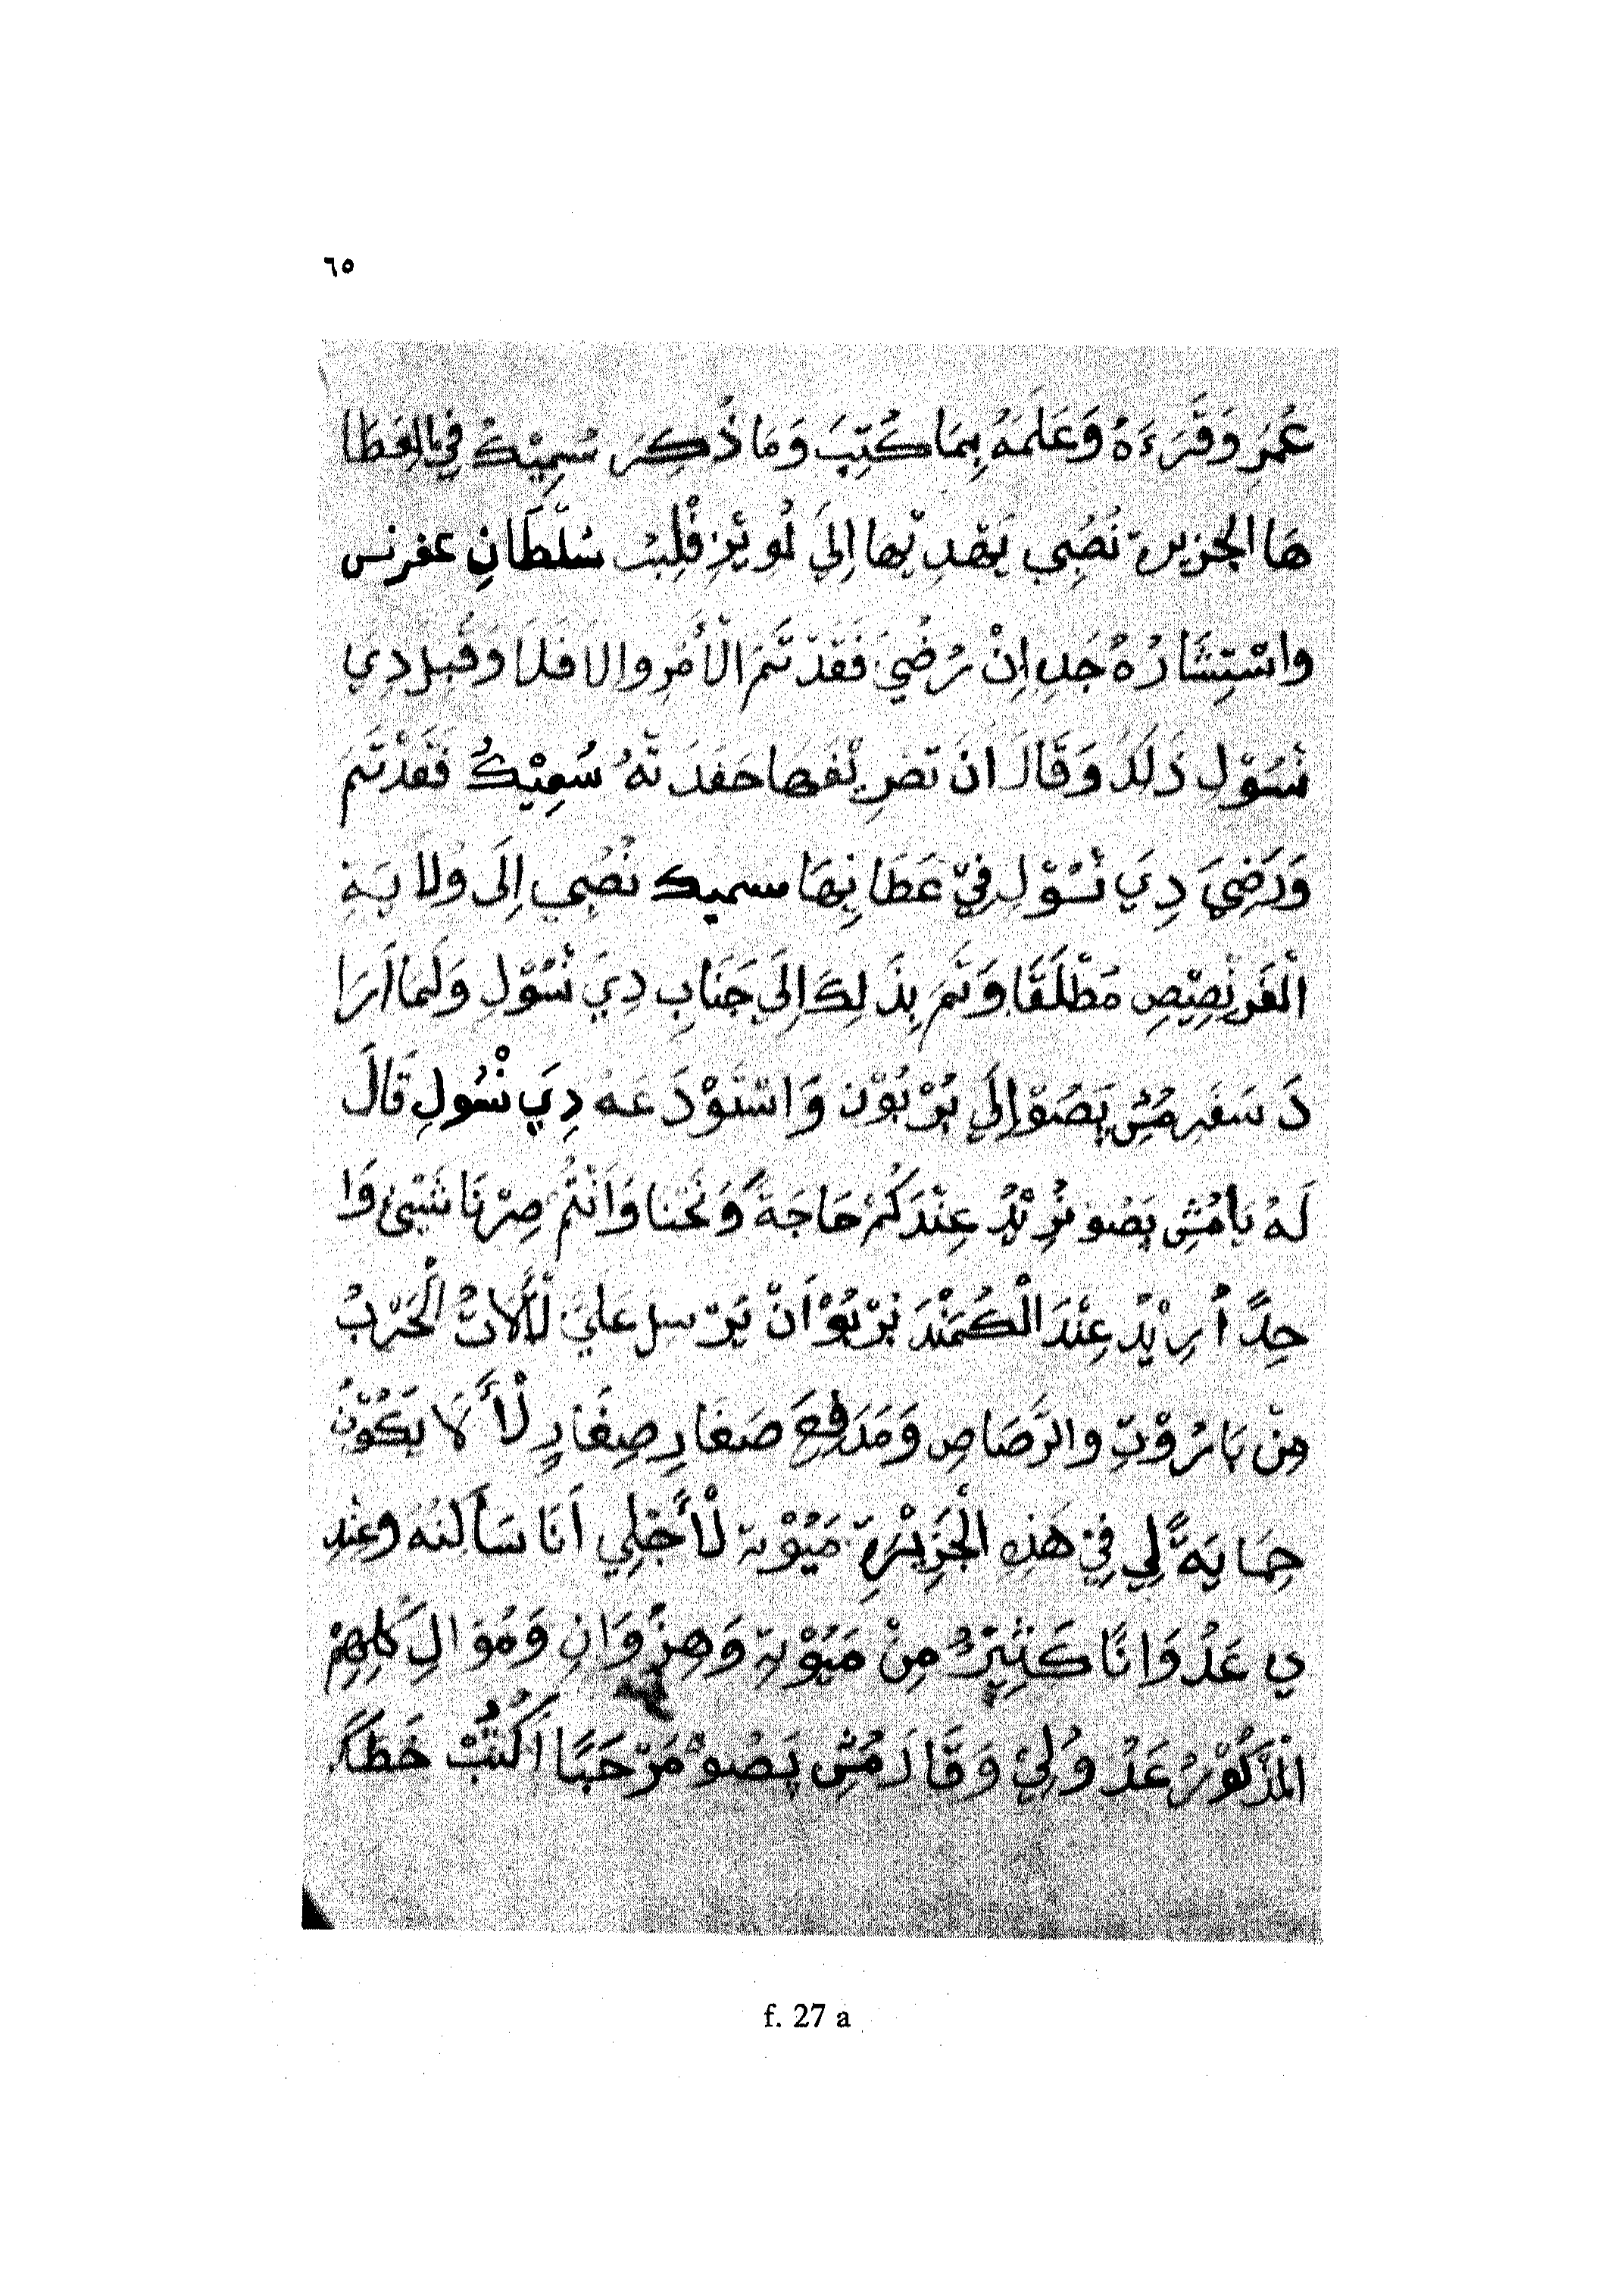 ٦٥
عُمَرِ وَقَرَءَهُ وَعَلَمَهُ بِمَا كَتِبَ وَمَا ذُكِرَ سُمِيْكُ فِي اعْطَا
هَا الجزيره نُصْبِي يَهْدِيْهَا اِلَي لُويْزِ فْلِبْ سُلْطَانِ عفرنس
واسْتِشَارُهُ جَدِ اِنْ رُضِيَ فَقَدْ تَمَ الْأَمْرِ والا فَلَا وَقُبِلِ دِي
نْسُوْلِ ذَلَكَ وَقَالَ انَ تضرِيْفهَا حَفَدَتْهُ سُمِيْكُ فَقَدْ تَمَ
وَرَضِيَ دِيَ نْسُوْلِ فِيْ عَطَانِهَا سميك نُصْبِي اِلَى وُلَايَةِ
الْفَرَنْصِيْصِ مَطْلَقًا وَتَمَ بِذَلِكَ اِلَي جَنَابِ دِيَ نْسُوْلِ وَلَمَا اَرَا
دَ سَفَرِ مُشِ پَصُوْ اِلَي بُرْبُوْن وَاسْتَوْدَعَهُ دِيَ نْسُولِ قَالَ
لَهُ يَا مُشِ پَصُو نُرِيْدُ عِنْدَكُمْ حَاجَةً وَنَحْنَا وَاَنْتُمْ صِرْنَا شَيْئ وَا
حِدً اُرِيْدُ عِنْدَ الْكُمَنْدَ بَرْبُوْ اَنْ يَرْسل عَلَيَ لْأَلَاتُ الْحَرْبُ
مِنْ بَارُوْتِ والرَّصَاصِ وَمَدَافِعَ صَغَارِ صِغَارٍ لْأَ لَا يَكُوْنُ
حِمَايَةً لِي فِيْ هَذِهِ الْجَزِيْرَةِ مَيُوْتة لْأَجْلِي اَنَا سَأَلتهُ وَعِنْدِ
ي عَدُوَانًا كَثِيْرٌ مِنْ مَيُوْتةِ وَهِنْزُوَانِ وَمُوَالِ كُلِهِمْ
الْمَذْكُوْرُ عَدُوُ لِيْ وَقَالَ مُشِ پَصُوْ مَرْحَبًا اَكْتُبْ خَطَكَ
f. 27 a